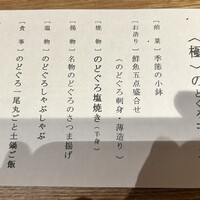 〈極〉のどぐろ
[前菜] 季節の小鉢
[お造り] 鮮魚五点盛合せ
(のどぐろ刺身・薄造り)
[焼物] のどぐろ塩焼き(半身)
[揚物] 名物のどぐろのさつま揚げ
[温物] のどぐろしゃぶしゃぶ
[食事] のどぐろ一尾丸ごと土鍋ご飯